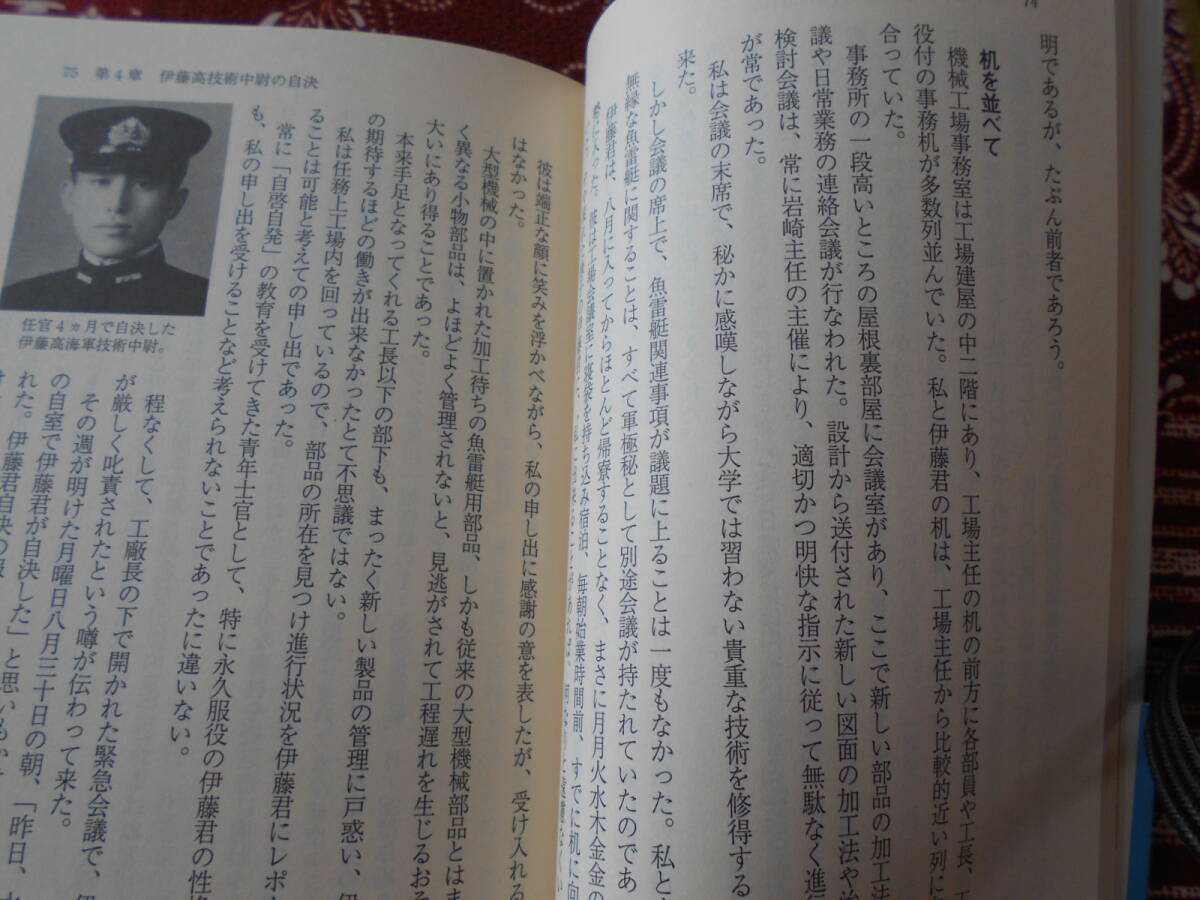 74
明であるが、たぶん前者であろう。
机を並べて
機械工場事務室は工場建屋の中二階にあり、工場主任の机の前方に各部員や工長、工
役付の事務机が多数列並んでいた。私と伊藤君の机は、工場主任から比較的近い列に
合っていた。
事務所の一段高いところの屋根裏部屋に会議室があり、ここで新しい部品の加工法
議や日常業務の連絡会議が行なわれた。設計から送付された新しい図面の加工法や治
検討会議は、常に岩崎主任の主催により、適切かつ明快な指示に従って無駄なく進行
が常であった。
私は会議の末席で、秘かに感嘆しながら大学では習わない貴重な技術を修得する
来た。
しかし会議の席上で、魚雷艇関連事項が議題に上ることは一度もなかった。私と
無縁な魚雷艇に関することは、すべて軍極秘として別途会議が持たれていたのであ
伊藤君は、八月に入ってからほとんど帰寮することなく、まさに月月火水木金金の
勢に入った。彼は工場会議室に寝袋を持ち込み宿泊、毎朝始業時間前、すでに机に向
75 第4章 伊藤高技術中尉の自決
任官4ヵ月で自決した
伊藤高海軍技術中尉。
彼は端正な顔に笑みを浮かべながら、私の申し出に感謝の意を表したが、受け入れる
はなかった。
大型機械の中に置かれた加工待ちの魚雷艇用部品、しかも従来の大型機械部品とはま
く異なる小物部品は、よほどよく管理されないと、見逃がされて工程遅れを生じるおそ
大いにあり得ることであった。
本来手足となってくれる工長以下の部下も、まったく新しい製品の管理に戸惑い、伊
の期待するほどの働きが出来なかったとて不思議ではない。
私は任務上工場内を回っているので、部品の所在を見つけ進行状況を伊藤君にレポ
ることは可能と考えての申し出であった。
常に「自啓自発」の教育を受けてきた青年士官として、特に永久服役の伊藤君の性格
も、私の申し出を受けることなど考えられないことであったに違いない。
程なくして、工廠長の下で開かれた緊急会議で、伊
が厳しく叱責されたという噂が伝わって来た。
その週が明けた月曜日八月三十日の朝、「昨日、
の自室で伊藤君が自決した」と思いもか
れた。伊藤君自決の報